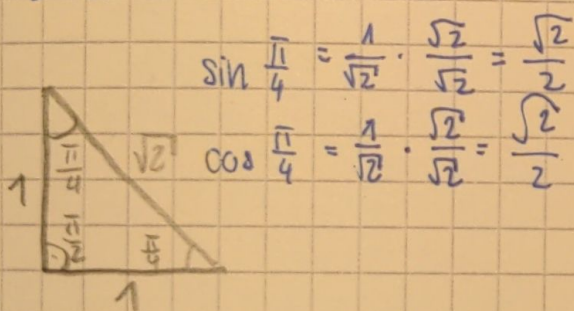 sin π/4 = 1/√2 · √2/√2 = √2/2
cos π/4 = 1/√2 · √2/√2 = √2/2
π/4
√2
1
π/2
π/4
1